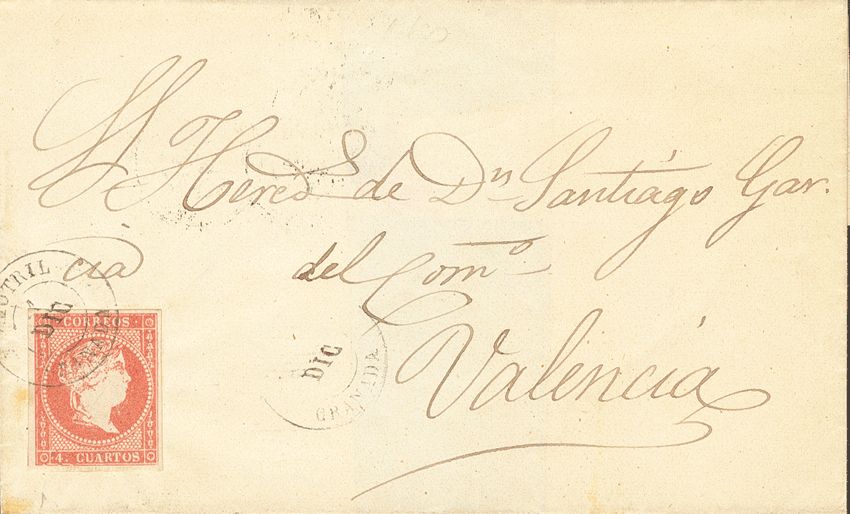 S. Hered.s de Dn. Santiágo Gar.
cia del Com.o
Valencia
MOTRIL
DIC
GRANADA
CORREOS
4. CUARTOS
DIC
GRANADA